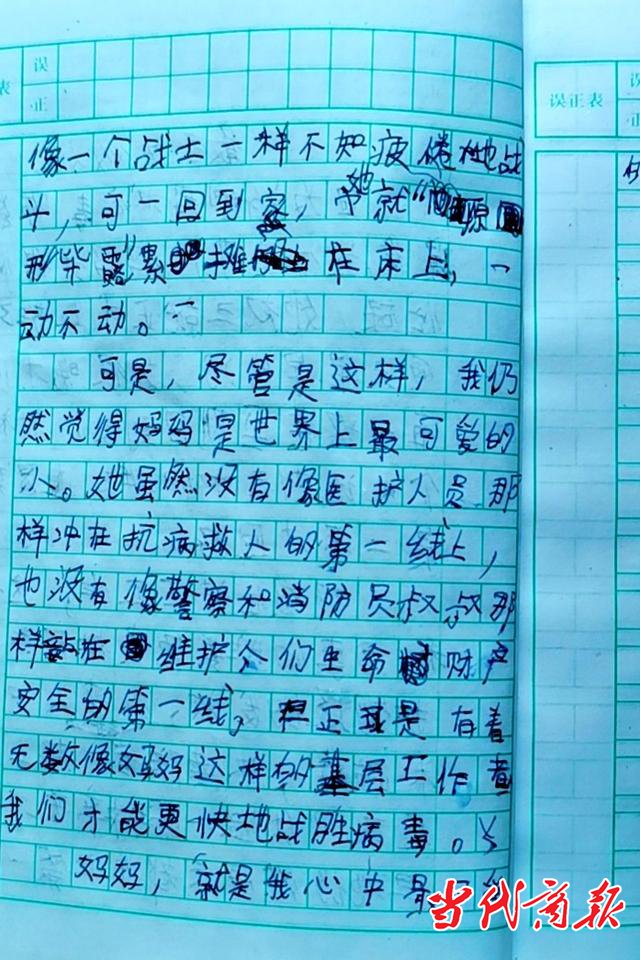 误
正
表
误正表
误
正
像一个战士一样不知疲倦地战
斗，可一回到家，她就“原
形毕露”累摊在床上，一
动不动。
可是，尽管是这样，我仍
然觉得妈妈是世界上最可爱的
人。她虽然没有像医护人员那
样冲在抗病救人的第一线上，
也没有像警察和消防员叔叔那
样站在维护人们生命财产
安全的第一线。但正是有着
无数像妈妈这样的基层工作者
我们才能更快地战胜病毒。
妈妈，就是我心中最
当代商报